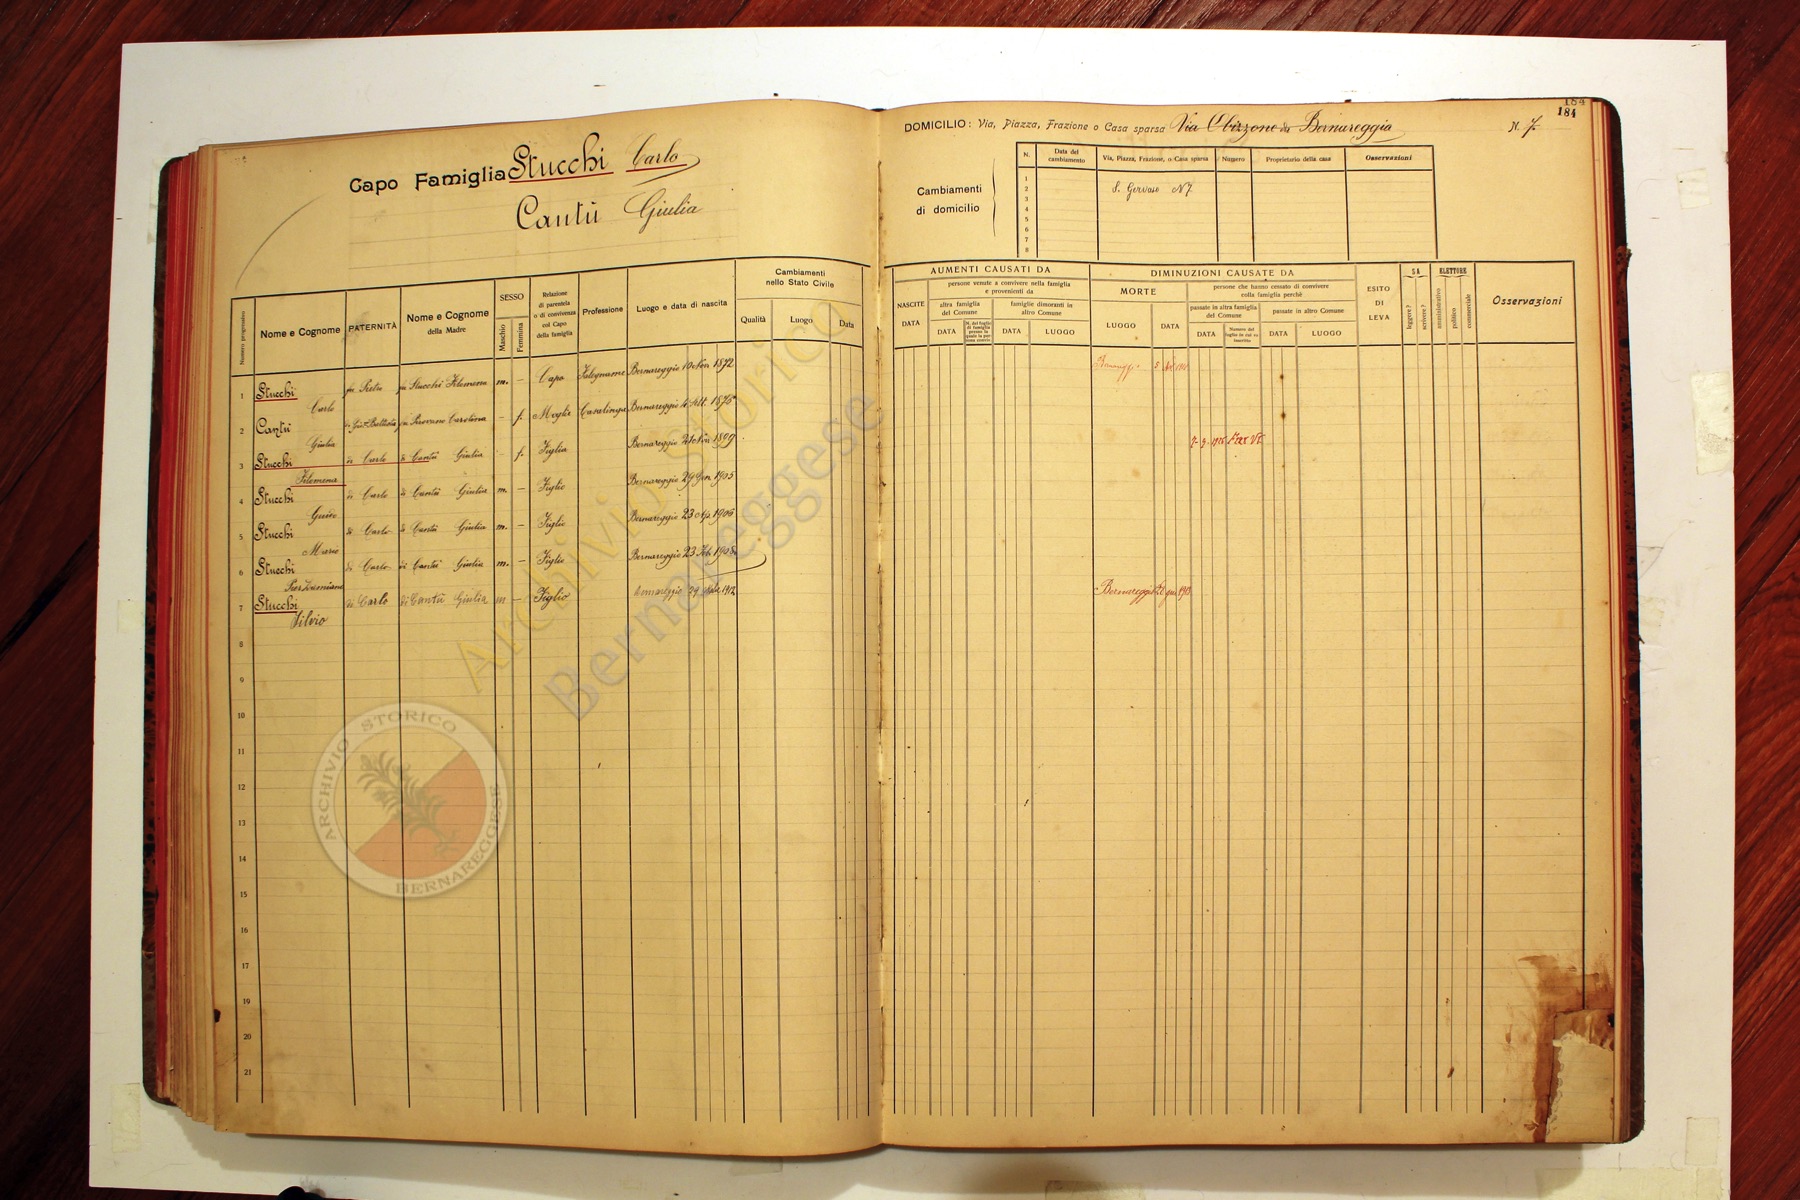 184
184
Capo Famiglia Stucchi Carlo
Cantù Giulia
DOMICILIO: Via, Piazza, Frazione o Casa sparsa Via Obizzone da Bernareggia N. 7
Cambiamenti
di domicilio
N.
Data del
cambiamento
Via, Piazza, Frazione, o Casa sparsa
Numero
Proprietario della casa
Osservazioni
1
2 S. Gervaso N 7
3
4
5
6
7
8
Numero progressivo
Nome e Cognome
PATERNITÀ
Nome e Cognome
della Madre
SESSO
Maschio
Femmina
Relazione
di parentela
o di convivenza
col Capo
della famiglia
Professione
Luogo e data di nascita
Cambiamenti
nello Stato Civile
Qualità
Luogo
Data
AUMENTI CAUSATI DA
NASCITE
DATA
persone venute a convivere nella famiglia
e provenienti da
altra famiglia
del Comune
DATA
famiglie dimoranti in
altro Comune
DATA
LUOGO
DIMINUZIONI CAUSATE DA
MORTE
LUOGO
DATA
persone che hanno cessato di convivere
colla famiglia perchè
passate in altra famiglia
del Comune
DATA
Numero del
foglio in cui fu
inscritto
passate in altro Comune
DATA
LUOGO
ESITO
DI
LEVA
SA
leggere?
scrivere?
ELETTORE
amministrativo
politico
commerciale
Osservazioni
1 Stucchi Carlo fu Pietro fu Stucchi Filomena m. – Capo Falegname Bernareggio 1872
2 Cantù Giulia di Gio Battista Carolina – f. Moglie Casalinga Bernareggio 4 Sett. 1876
3 Stucchi Filomena di Carlo di Cantù Giulia f. Figlia Bernareggio 1899
4 Stucchi Guido di Carlo di Cantù Giulia m. – Figlio Bernareggio 29 Gen 1905
5 Stucchi Mario di Carlo di Cantù Giulia m. – Figlio Bernareggio 23 Ap. 1906
6 Stucchi di Carlo di Cantù Giulia m. – Figlio Bernareggio 23 Feb 1908
7 Stucchi Silvio di Carlo di Cantù Giulia m – Figlio Bernareggio 29 1912 Bernareggio
8
9
10
11
12
13
14
15
16
17
19
20
21
Archivio Storico
Bernareggese
ARCHIVIO STORICO
BERNAREGGESE